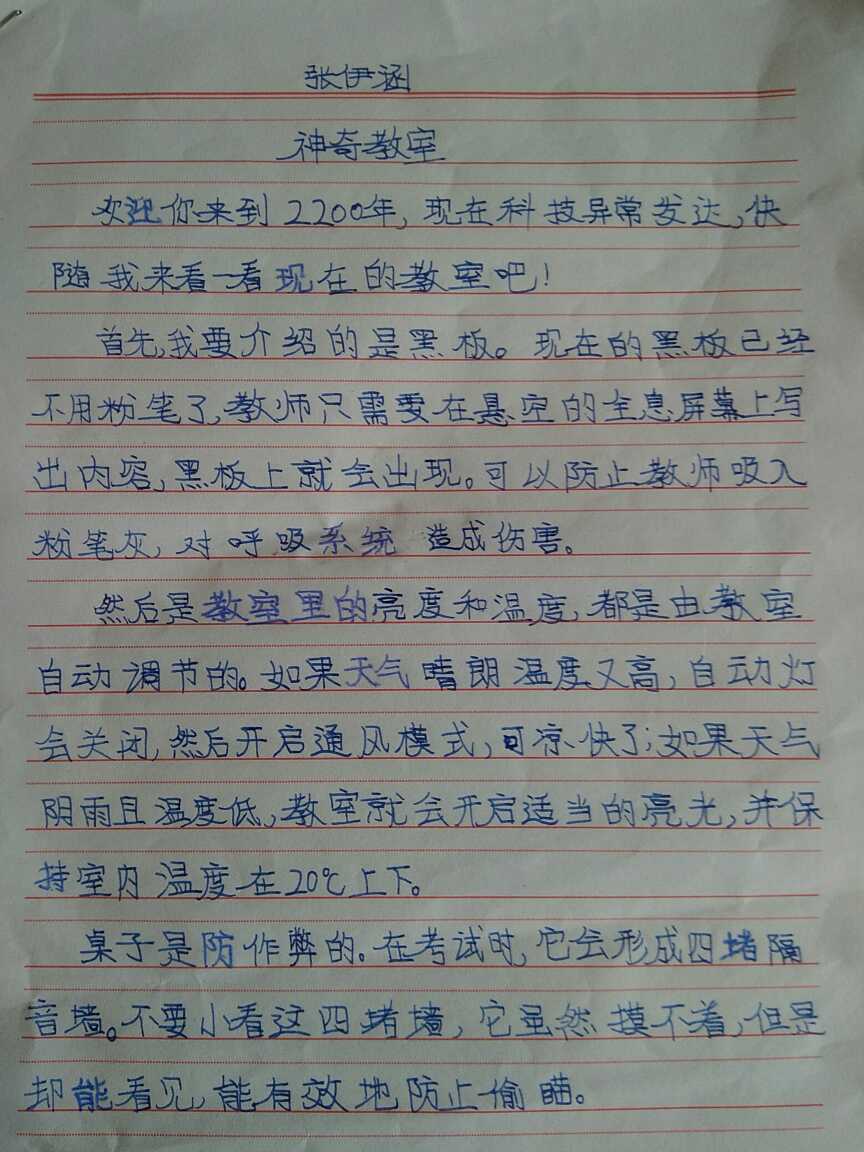 张伊涵
神奇教室
欢迎你来到2200年,现在科技异常发达,快
随我来看一看现在的教室吧!
首先,我要介绍的是黑板。现在的黑板已经
不用粉笔了,教师只需要在悬空的全息屏幕上写
出内容,黑板上就会出现。可以防止教师吸入
粉笔灰,对呼吸系统造成伤害。
然后是教室里的亮度和温度,都是由教室
自动调节的。如果天气晴朗温度又高,自动灯
会关闭,然后开启通风模式,可凉快了;如果天气
阴雨且温度低,教室就会开启适当的亮光,并保
持室内温度在20℃上下。
桌子是防作弊的。在考试时,它会形成四堵隔
音墙。不要小看这四堵墙,它虽然摸不着,但是
却能看见,能有效地防止偷瞄。